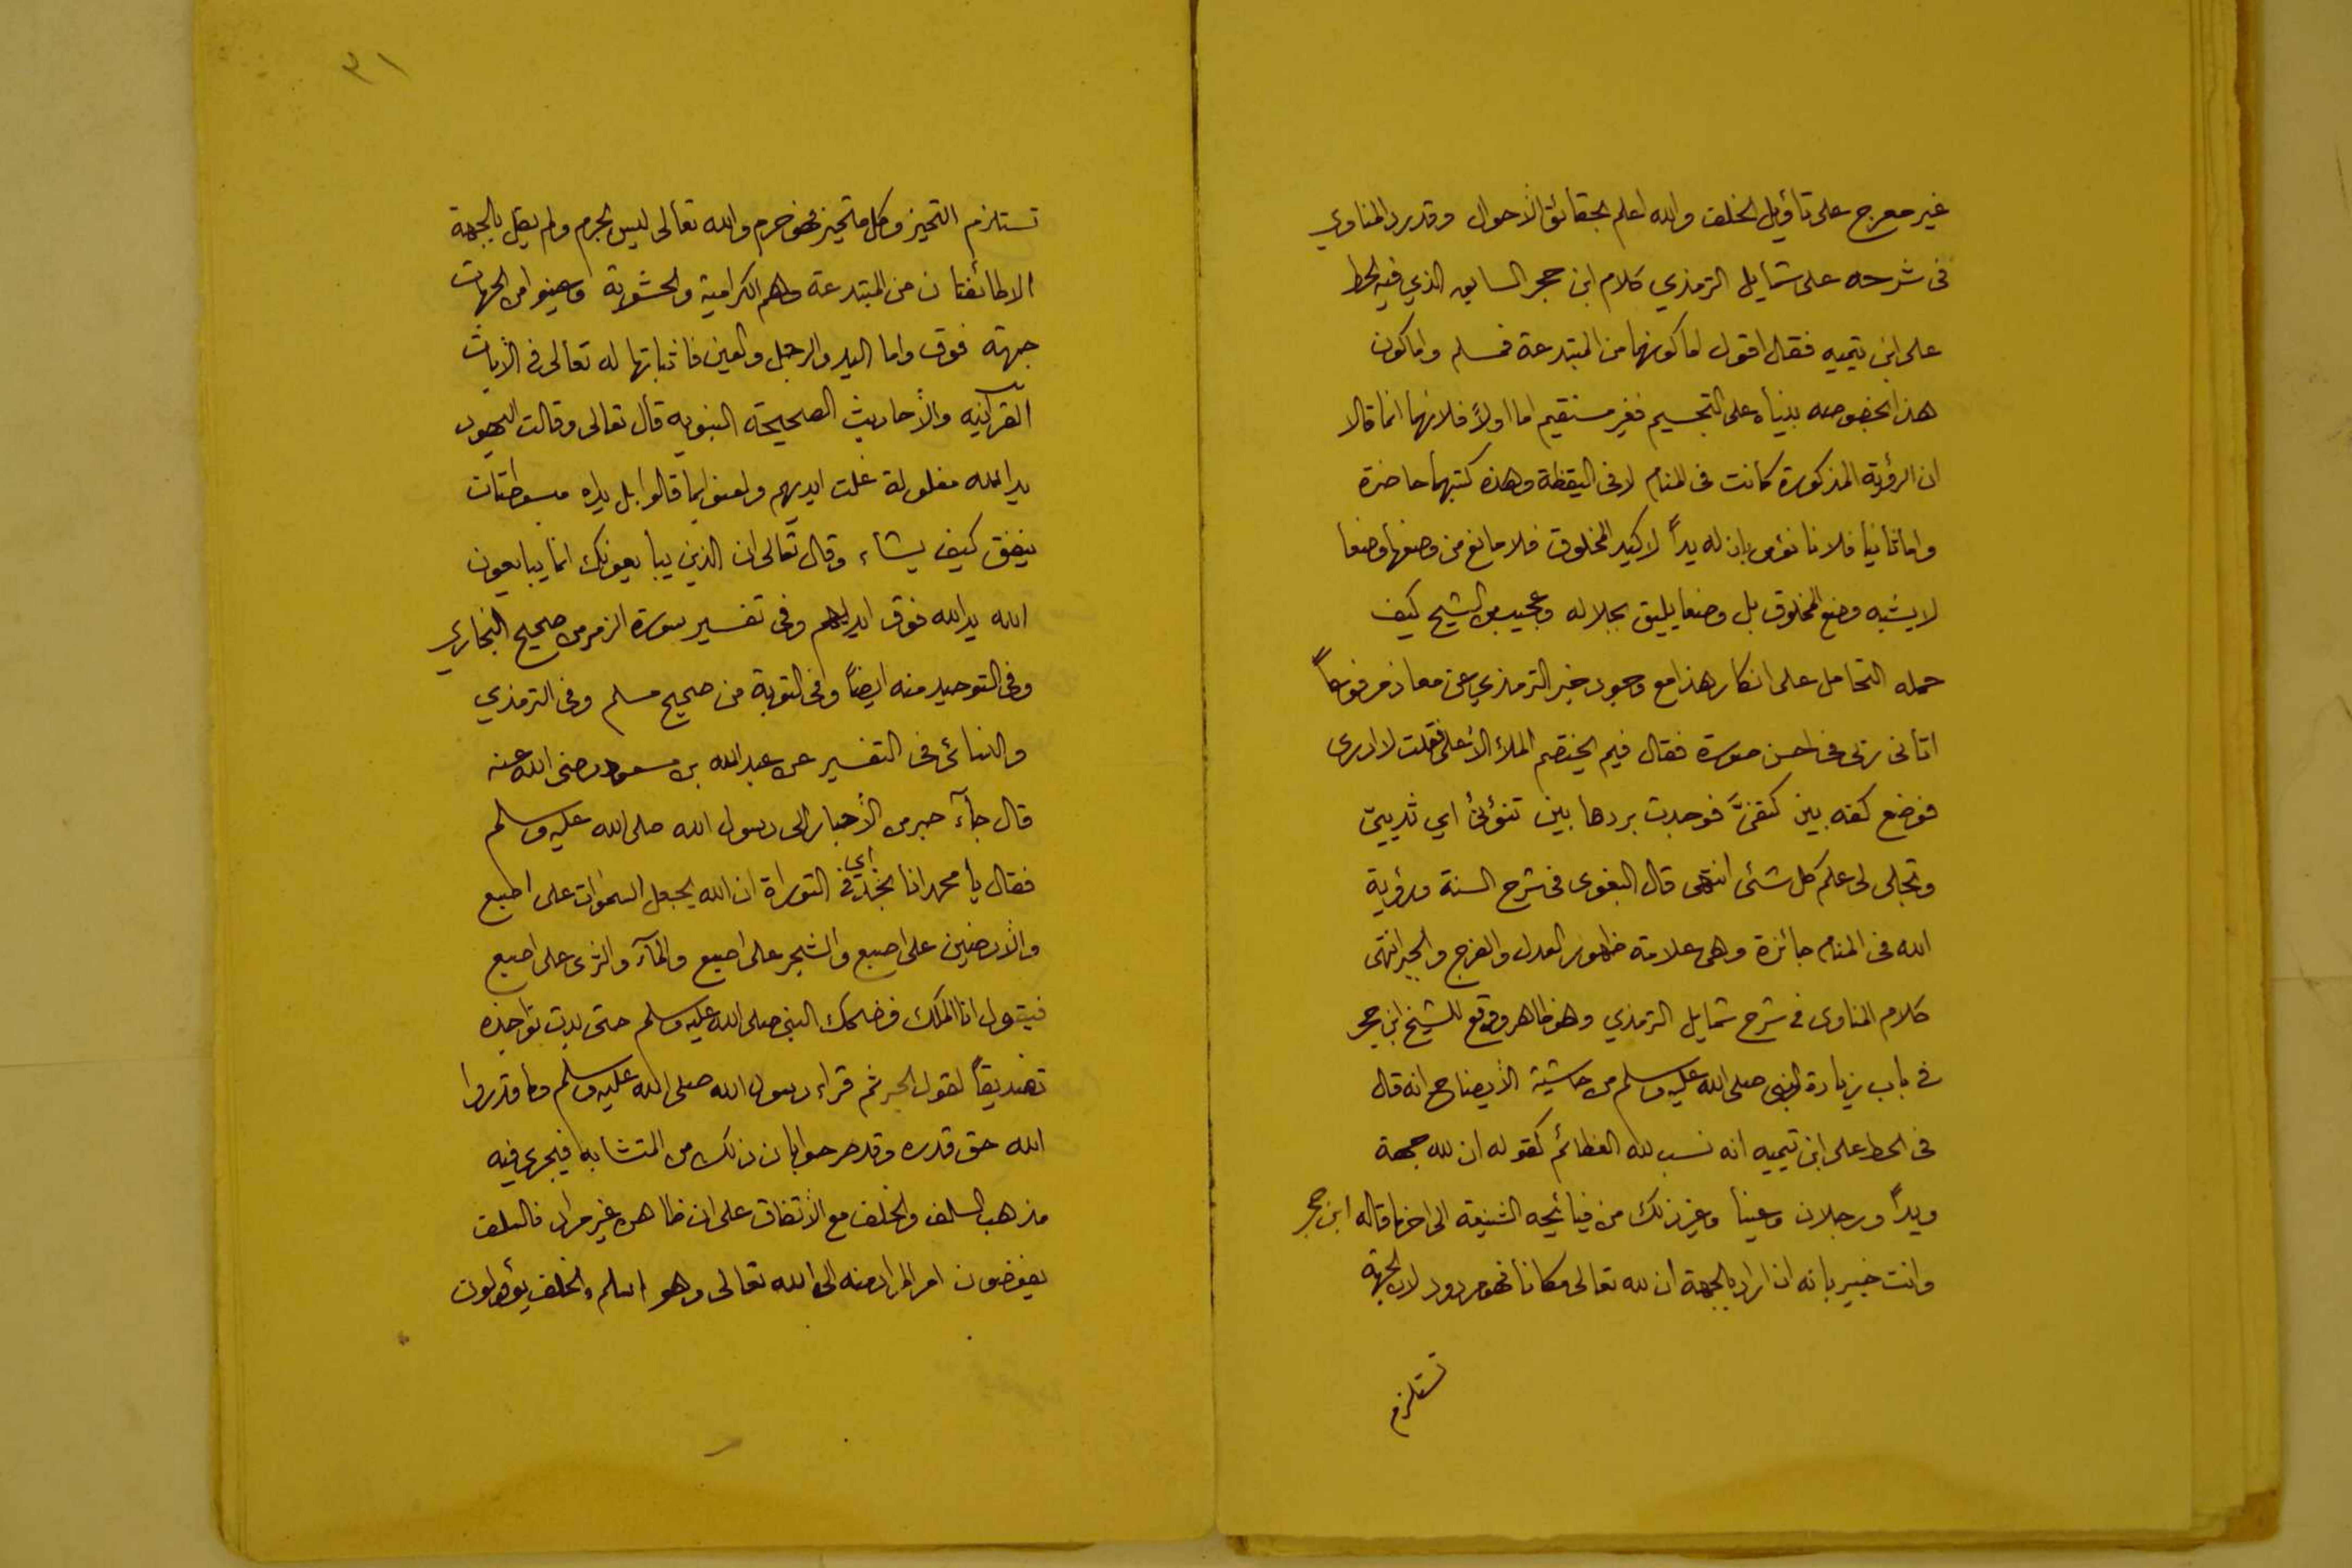 غير معرج على تأويل الخلف والله اعلم بحقائق الأحوال وقد رد المناوي
في شرحه على شمايل الترمذي كلام ابن حجر السابق الذي فيه الحط
على ابن تيميه فقال اقول اما كونهما من المبتدعة فمسلم واما كون
هذا بخصوصه بنياه على التجسيم فغير مستقيم اما اولاً فلانهما انما قالا
ان الرؤية المذكورة كانت في المنام لا في اليقظة وهذه كتبهما حاضرة
واما ثانيا فلانا نؤمن بان له يداً لا كيد المخلوق فلا مانع من وضعها وضعا
لا يشبه وضع المخلوق بل وضعا يليق بجلاله وعجيب من الشيخ كيف
حمله التحامل على انكار هذا مع وجود خبر الترمذي عن معاذ مرفوعاً
اتاني ربي في احسن صورة فقال فيم يختصم الملاء الأعلى فقلت لا ادرى
فوضع كفه بين كتفيَّ فوجدت بردها بين تنؤتي اي ثدييّ
وتجلى لى علم كل شئ انتهى قال البغوى في شرح السنة ورؤية
الله في المنام جائزة وهى علامة ظهور العدل والفرج والخير انتهى
كلام المناوى في شرح شمايل الترمذي وهو ظاهر ووقع للشيخ ابن حجر
في باب زيارة النبى صلى الله عليه وسلم من حاشية الأيضاح انه قال
في الحط على ابن تيميه انه نسب لله العظائم كقوله ان لله جهة
ويداً ورجلان وعينا وغير ذلك من قبائحه الشنيعة الى اخر ما قاله ابن حجر
وانت خبير بانه ان اراد بالجهة ان لله تعالى مكانا فهو مردود لان الجهة
تستلزم
٣١
تستلزم التحيز وكل متحيز فهو جرم والله تعالى ليس بجرم ولم يقل بالجهة
الا طائفتان من المبتدعة وهم الكرامية والحشوية وعينوا من الجهات
جهة فوق واما اليد والرجل والعين فاثباتها له تعالى في الأيات
القرآنيه والأحاديث الصحيحة النبويه قال تعالى وقالت اليهود
يد الله مغلولة غلت ايديهم ولعنوا بما قالوا بل يداه مبسوطتان
ينفق كيف يشاء وقال تعالى ان الذين يبايعونك انما يبايعون
الله يد الله فوق ايديهم وفي تفسير سورة الزمر من صحيح البخاري
وفي التوحيد منه ايضاً وفي التوبة من صحيح مسلم وفي الترمذي
والنسائى في التفسير عن عبد الله بن مسعود رضى الله عنه
قال جآء حبر من الأحبار الى رسول الله صلى الله عليه وسلم
فقال يا محمد انا نجد اي في التوراة ان الله يجعل السموات على اصبع
والأرضين على اصبع والشجر على اصبع والمآء والثرى على اصبع
فيقول انا الملك فضحك النبى صلى الله عليه وسلم حتى بدت نواجذه
تصديقاً لقول الحبر ثم قراء رسول الله صلى الله عليه وسلم وما قدروا
الله حق قدره وقد صرحوا بان ذلك من المتشابه فيجرى فيه
مذهب السلف والخلف مع الأتفاق على ان ظاهره غير مراد فالسلف
يفوضون امر المراد منه الى الله تعالى وهو اسلم والخلف يؤولون